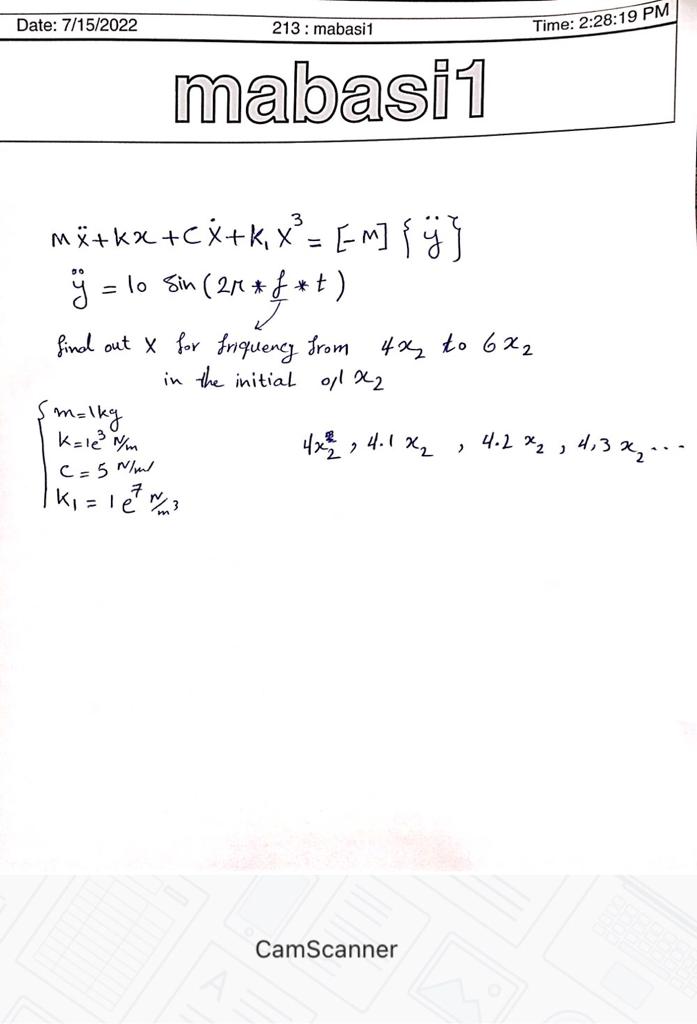 Date: 7/15/2022 213 : mabasi1 Time: 2:28:19 PM
mabasi1
mẍ + kx + cẋ + k₁x³ = [-M] {ÿ}
ÿ = 10 Sin (2π * f * t)
find out x for friquency from 4x₂ to 6x₂
in the initial of x₂
m=1kg
k=1e³ N/m
4x₂, 4.1 x₂, 4.2 x₂, 4,3 x₂...
c = 5
k₁ = 1e⁷ N/m³
CamScanner